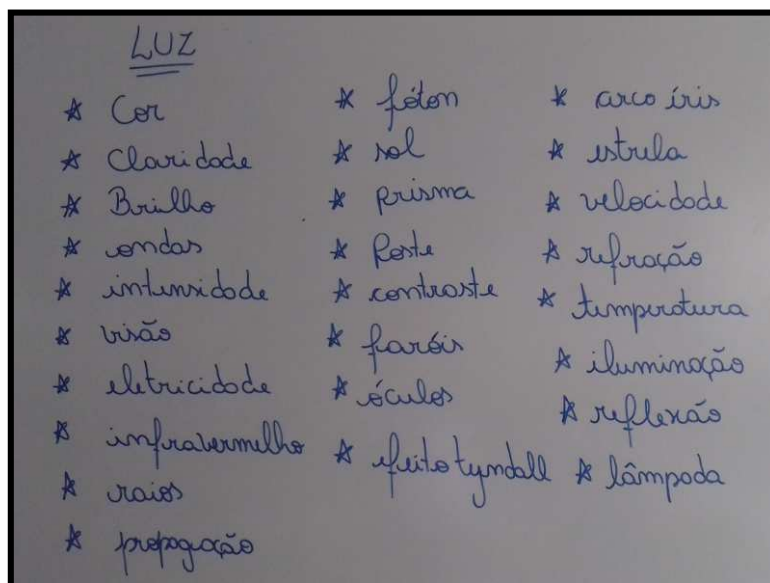 LUZ
* Cor
* Claridade
* Brilho
* ondas
* intensidade
* visão
* eletricidade
* infravermelho
* raios
* propagação
* fóton
* sol
* prisma
* Poste
* contraste
* faróis
* óculos
* efeito tyndall
* arco íris
* estrela
* velocidade
* refração
* temperatura
* iluminação
* reflexão
* lâmpada